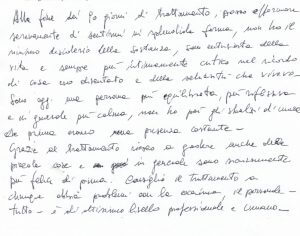 Alla fine dei 90 giorni di trattamento, posso affermare
serenamente di sentirmi in splendida forma, non ho il
minimo desiderio della sostanza, son entusiasta della
vita e sempre più intimamente critico nel ricordo
di cosa ero diventato e della schiavitù che vivevo.
Sono oggi una persona più equilibrata, più riflessiva
e in generale più calma, non ho più gli sbalzi d'umore
che prima erano una presenza costante -
Grazie al trattamento riesco a godere anche delle
piccole cose e in generale sono nuovamente
più felice di prima. Consiglio il trattamento a
chiunque abbia problemi con la cocaina il personale
tutto - è di altissimo livello professionale e umano -